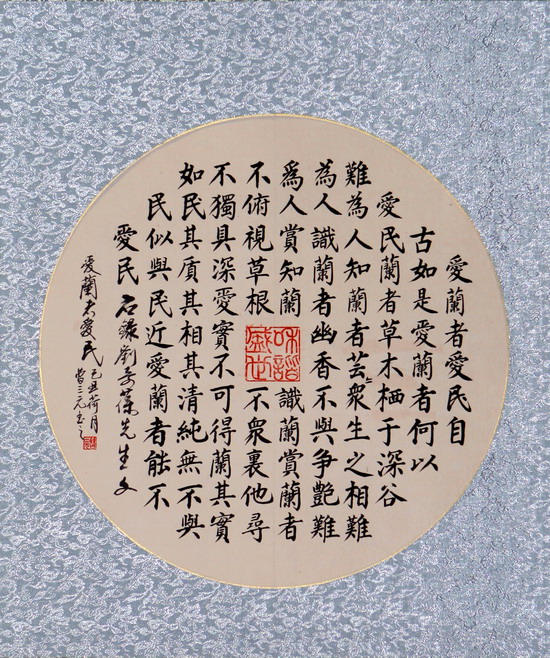 愛蘭者愛民自
古如是愛蘭者何以
愛民蘭者草木栖于深谷
難為人知蘭者芸〻眾生之相難
為人識蘭者幽香不與争艷難
爲人賞知蘭識蘭賞蘭者
不俯視草根不眾裏他尋
不獨具深愛實不可得蘭其實
如民其质其相其清純無不與
民似與民近愛蘭者能不
愛民
先生文
爱蘭者爱民
己丑荷月
曾三元書
和諧盛世